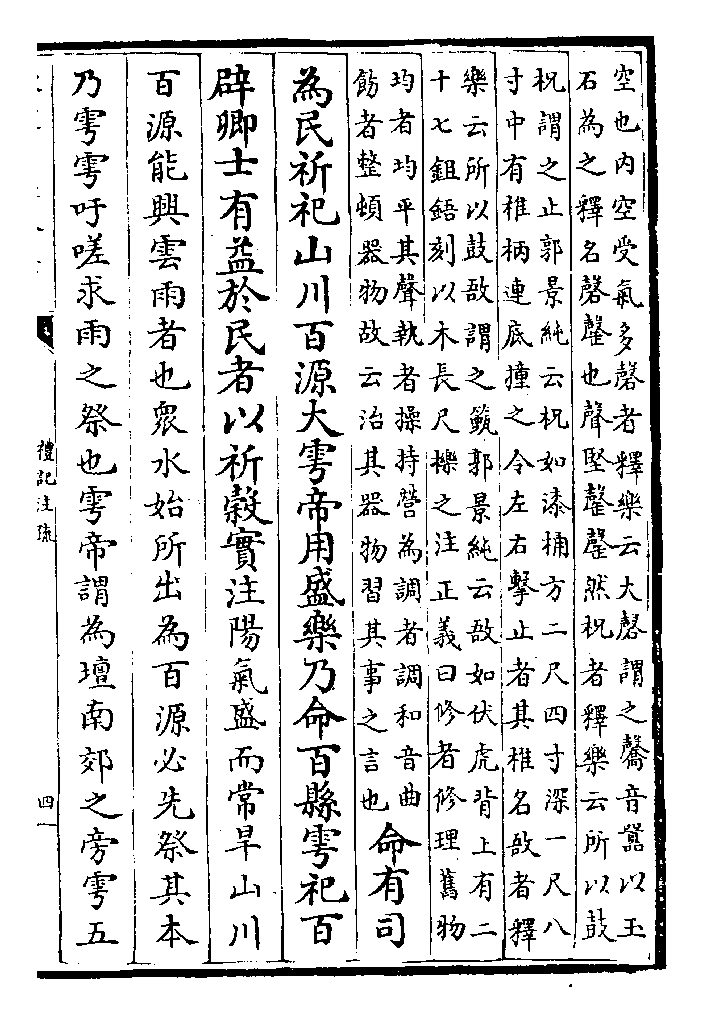 空也内空受氣多磬者釋樂云大磬謂之毊音嚻以玉
石為之釋名磬罄也聲堅罄罄然柷者釋樂云所以鼓
柷謂之止郭景純云柷如漆桶方二尺四寸深一尺八
寸中有椎柄連底撞之令左右擊止者其椎名敔者釋
樂云所以鼓敔謂之籈郭景純云敔如伏虎背上有二
十七鉏鋙刻以木長尺櫟之注正義曰修者修理舊物
均者均平其聲執者操持營為調者調和音曲
飭者整頓器物故云治其器物習其事之言也
命有司
為民祈祀山川百源大雩帝用盛樂乃命百縣雩祀百
辟卿士有益於民者以祈榖實注陽氣盛而常旱山川
百源能興雲雨者也衆水始所出為百源必先祭其本
乃雩雩吁嗟求雨之祭也雩帝謂為壇南郊之旁雩五
禮記注疏
四